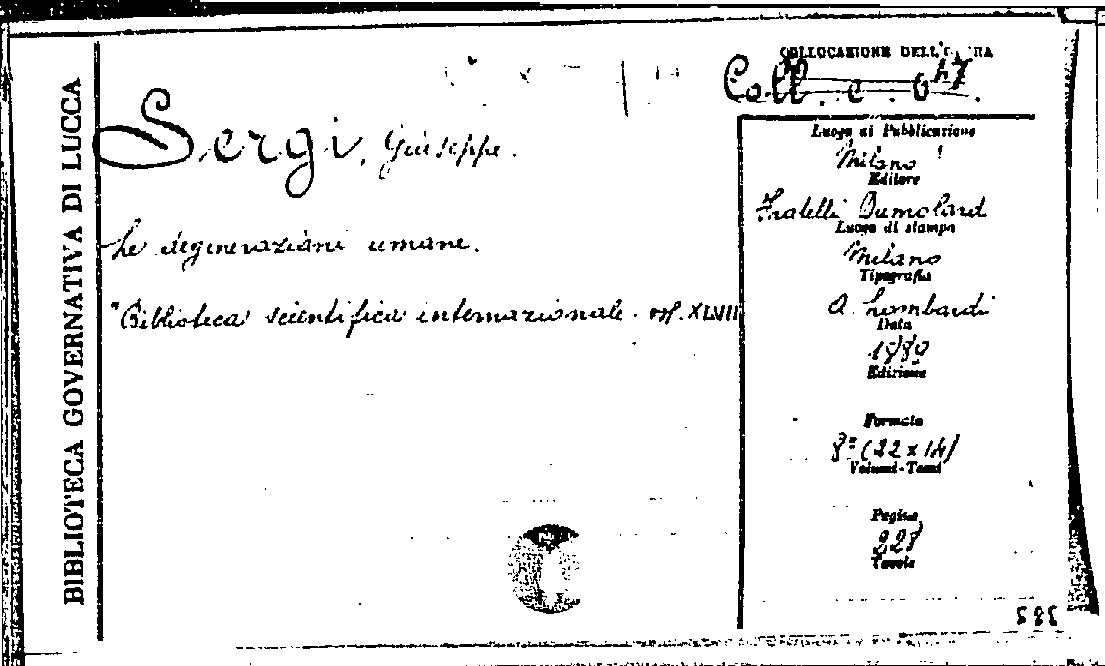 BIBLIOTECA GOVERNATIVA DI LUCCA
COLLOCAZIONE DELL'OPERA
Coll. c. 0 47
Sergi, Giuseppe.
Le degenerazioni umane.
"Biblioteca scientifica internazionale. vol. XLVII
Luogo di Pubblicazione
Milano
Editore
Fratelli Dumolard
Luogo di stampa
Milano
Tipografia
A. Lombardi
Data
1889
Edizione
Formato
8º (22 x 14)
Volumi-Tomi
Pagine
228
Tavole